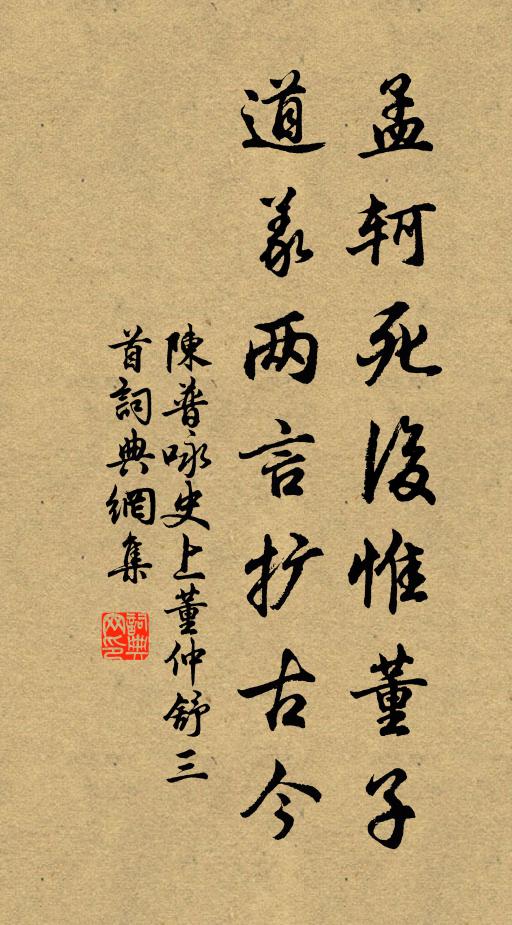 孟轲死後惟董子
道义两言扩古今
陳普咏史上董仲舒三
首詞典網集
詞典
网印